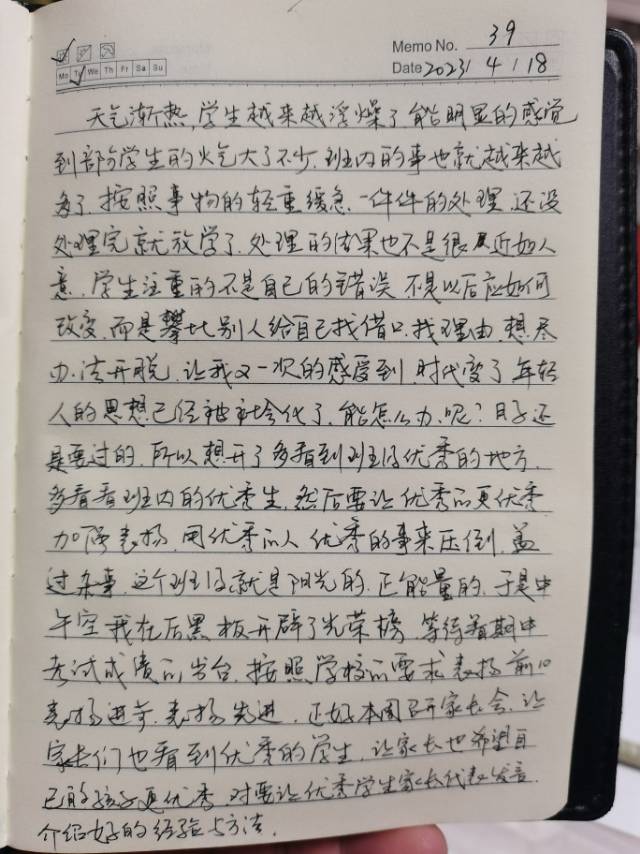 Memo No. 39
Mo Tu We Th Fr Sa Su
Date 2023/4/18
天气渐热,学生越来越浮燥了能明显的感觉
到部分学生的火气大了不少.班内的事也就越来越
多了.按照事物的轻重缓急.一件件的处理.还没
处理完就放学了.处理的结果也不是很尽近如人
意.学生注重的不是自己的错误.不是以后应如何
改变.而是攀比别人给自己找借口.找理由.想尽
办法开脱.让我又一次的感受到.时代变了.年轻
人的思想已经被社会化了.能怎么办呢?日子还
是要过的.所以想开了多看到班级优秀的地方.
多看看班内的优秀生.然后要让优秀的更优秀
加强表扬.用优秀的人优秀的事来压倒.盖
过杂事.这个班级就是阳光的.正能量的.于是中
午空我在后黑板开辟了光荣榜.等待着期中
考试成绩的出台.按照学校的要求表扬前10
表扬进步.表扬先进.正好本周召开家长会.让
家长们也看到优秀的学生.让家长也希望自
己的孩子更优秀.对要让优秀学生家长代表发言.
介绍好的经验与方法.